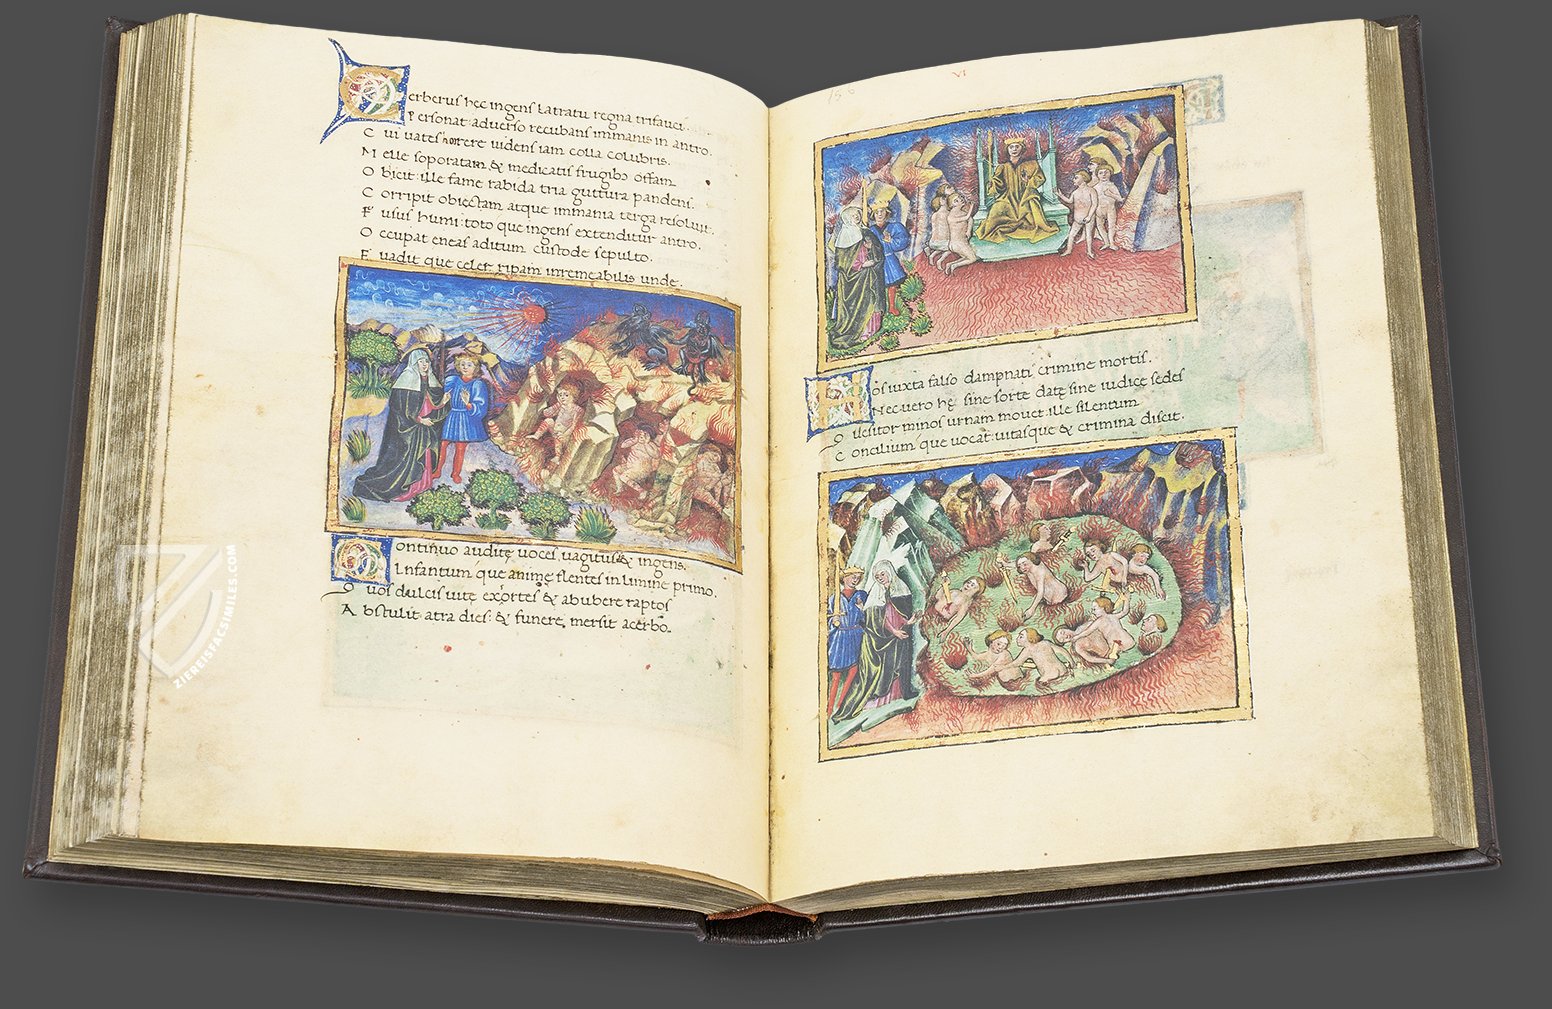 Cerberus hec ingens latratu regna trifauci.
Personat adverso recubans immanis in antro.
Cui vates horrere videns iam colla colubris.
Melle soporatam & medicatis frugibꝰ offam
Obicit ille fame rabida tria guttura pandens.
Corripit obiectam atque immania terga resoluit.
Fusus humi: toto que ingens extenditur antro.
Occupat eneas aditum custode sepulto.
Evadit que celer ripam irremeabilis unde.
Continuo auditę voces vagitus & ingens.
Infantum que animę flentes in limine primo.
Quos dulcis vitę exortes & ab ubere raptos
Abstulit atra dies: & funere mersit acerbo.
ZIEREISFACSIMILES.COM
VI
156
Hos iuxta falso dampnati crimine mortis.
Nec vero hę sine sorte datę sine iudice sedes
Quesitor minos urnam movet: ille silentum
Concilium que vocat: vitasque & crimina discit.